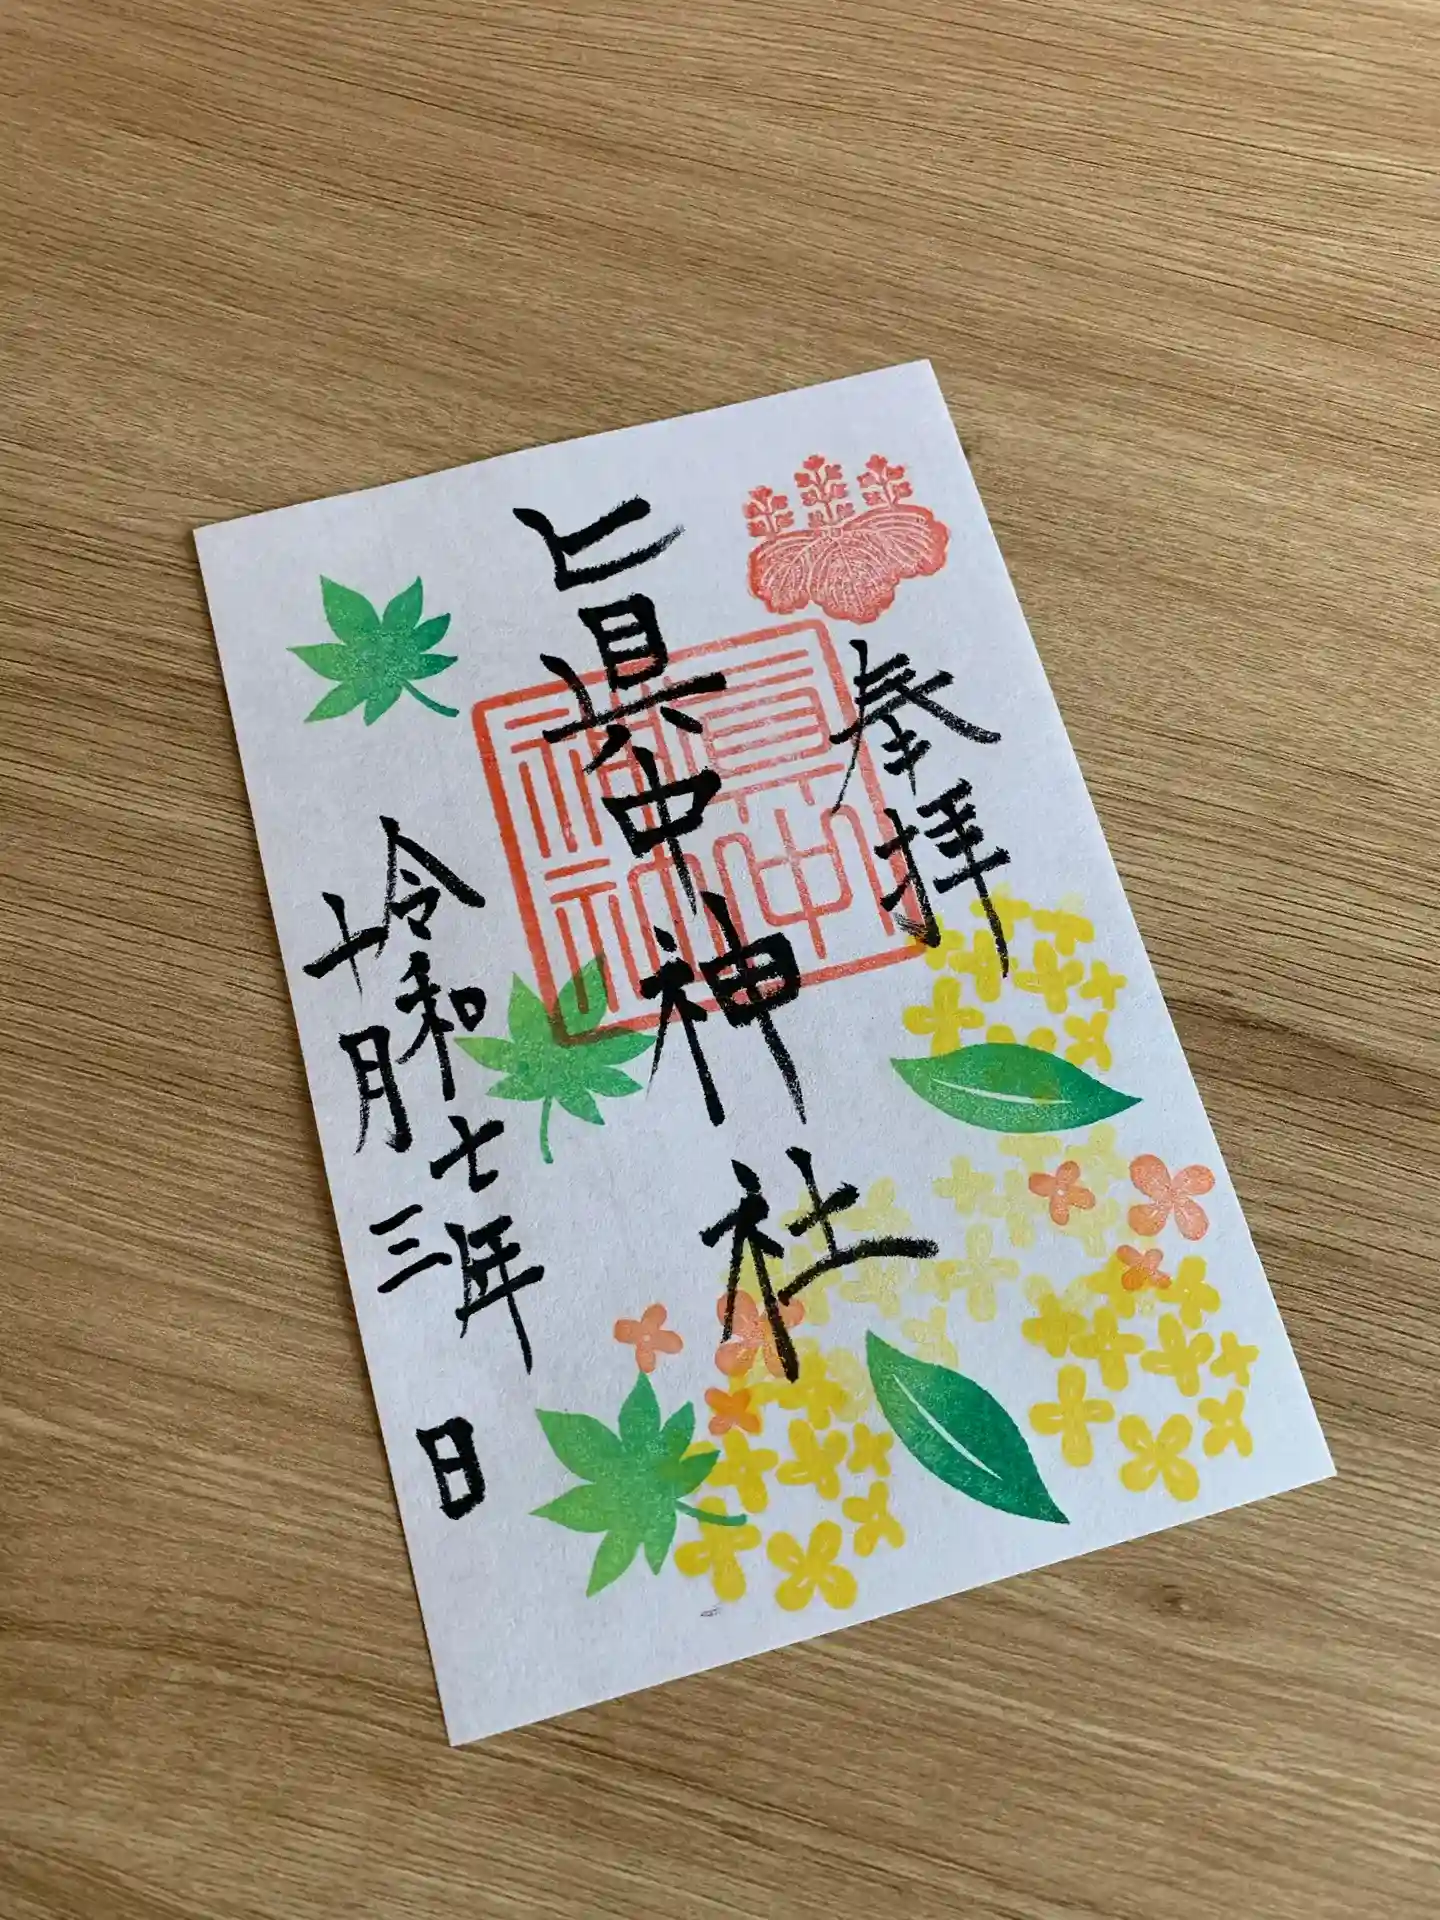 奉拝
眞中神社
令和七年
十月三日
眞中
神社